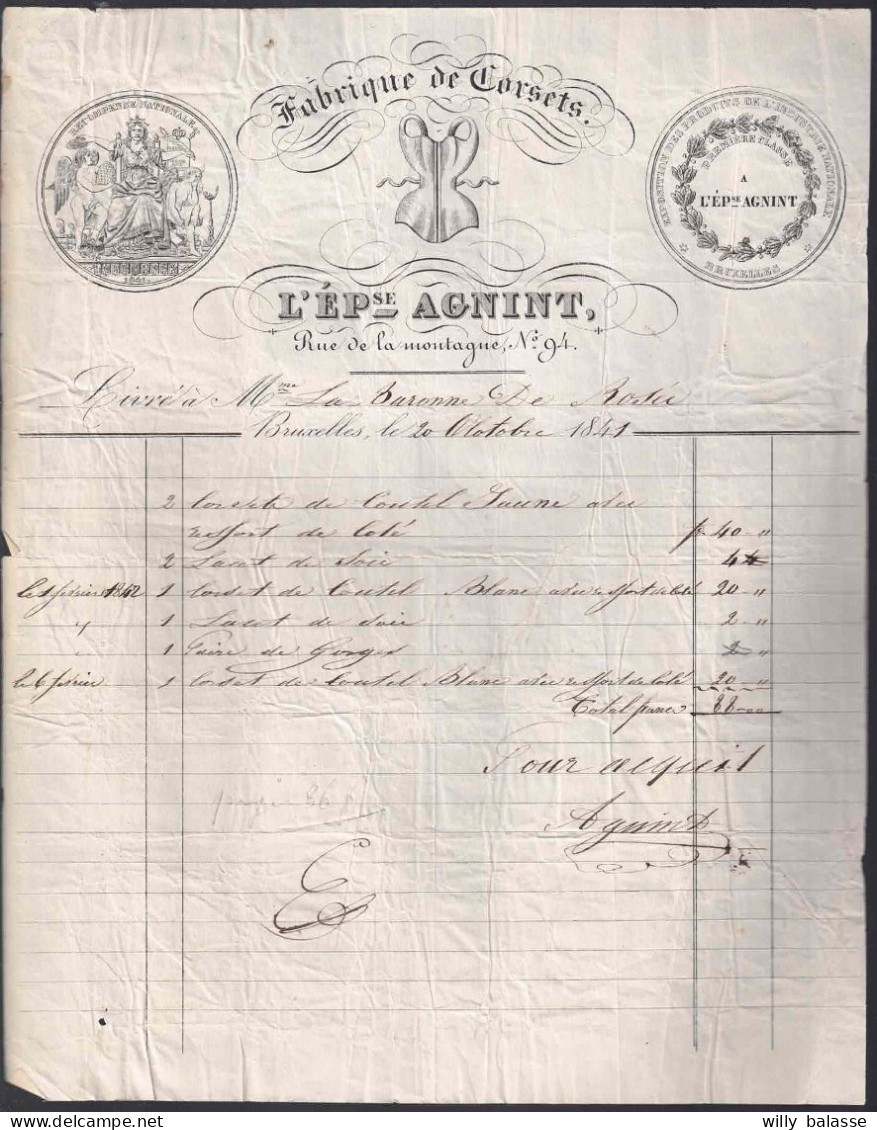 Fabrique de Corsets.
RECOMPENSE NATIONALE
1841.
EXPOSITION DES PRODUITS DE L'INDUSTRIE NATIONALE
PREMIÈRE CLASSE
A
L'ÉPSE AGNINT
BRUXELLES
L'ÉPSE AGNINT,
Rue de la montagne, No 94.
Livré à Mme La Baronne De Rosée
Bruxelles, le 20 Octobre 1841
2 Corsets de Coutil Jaune avec
ressort de Coté f 40 - "
2 Lacet de Soie 4 "
le 1 février 1842 1 Corset de Coutil Blanc avec ressort de Coté 20 - "
" 1 Lacet de Soie 2 - "
" 1 Paire de Gorges 2 "
le 6 février 1 Corset de Coutil Blanc avec ressort de Coté 20 - "
Total francs 88 - 00
Pour acquit
Agnint
willy balasse